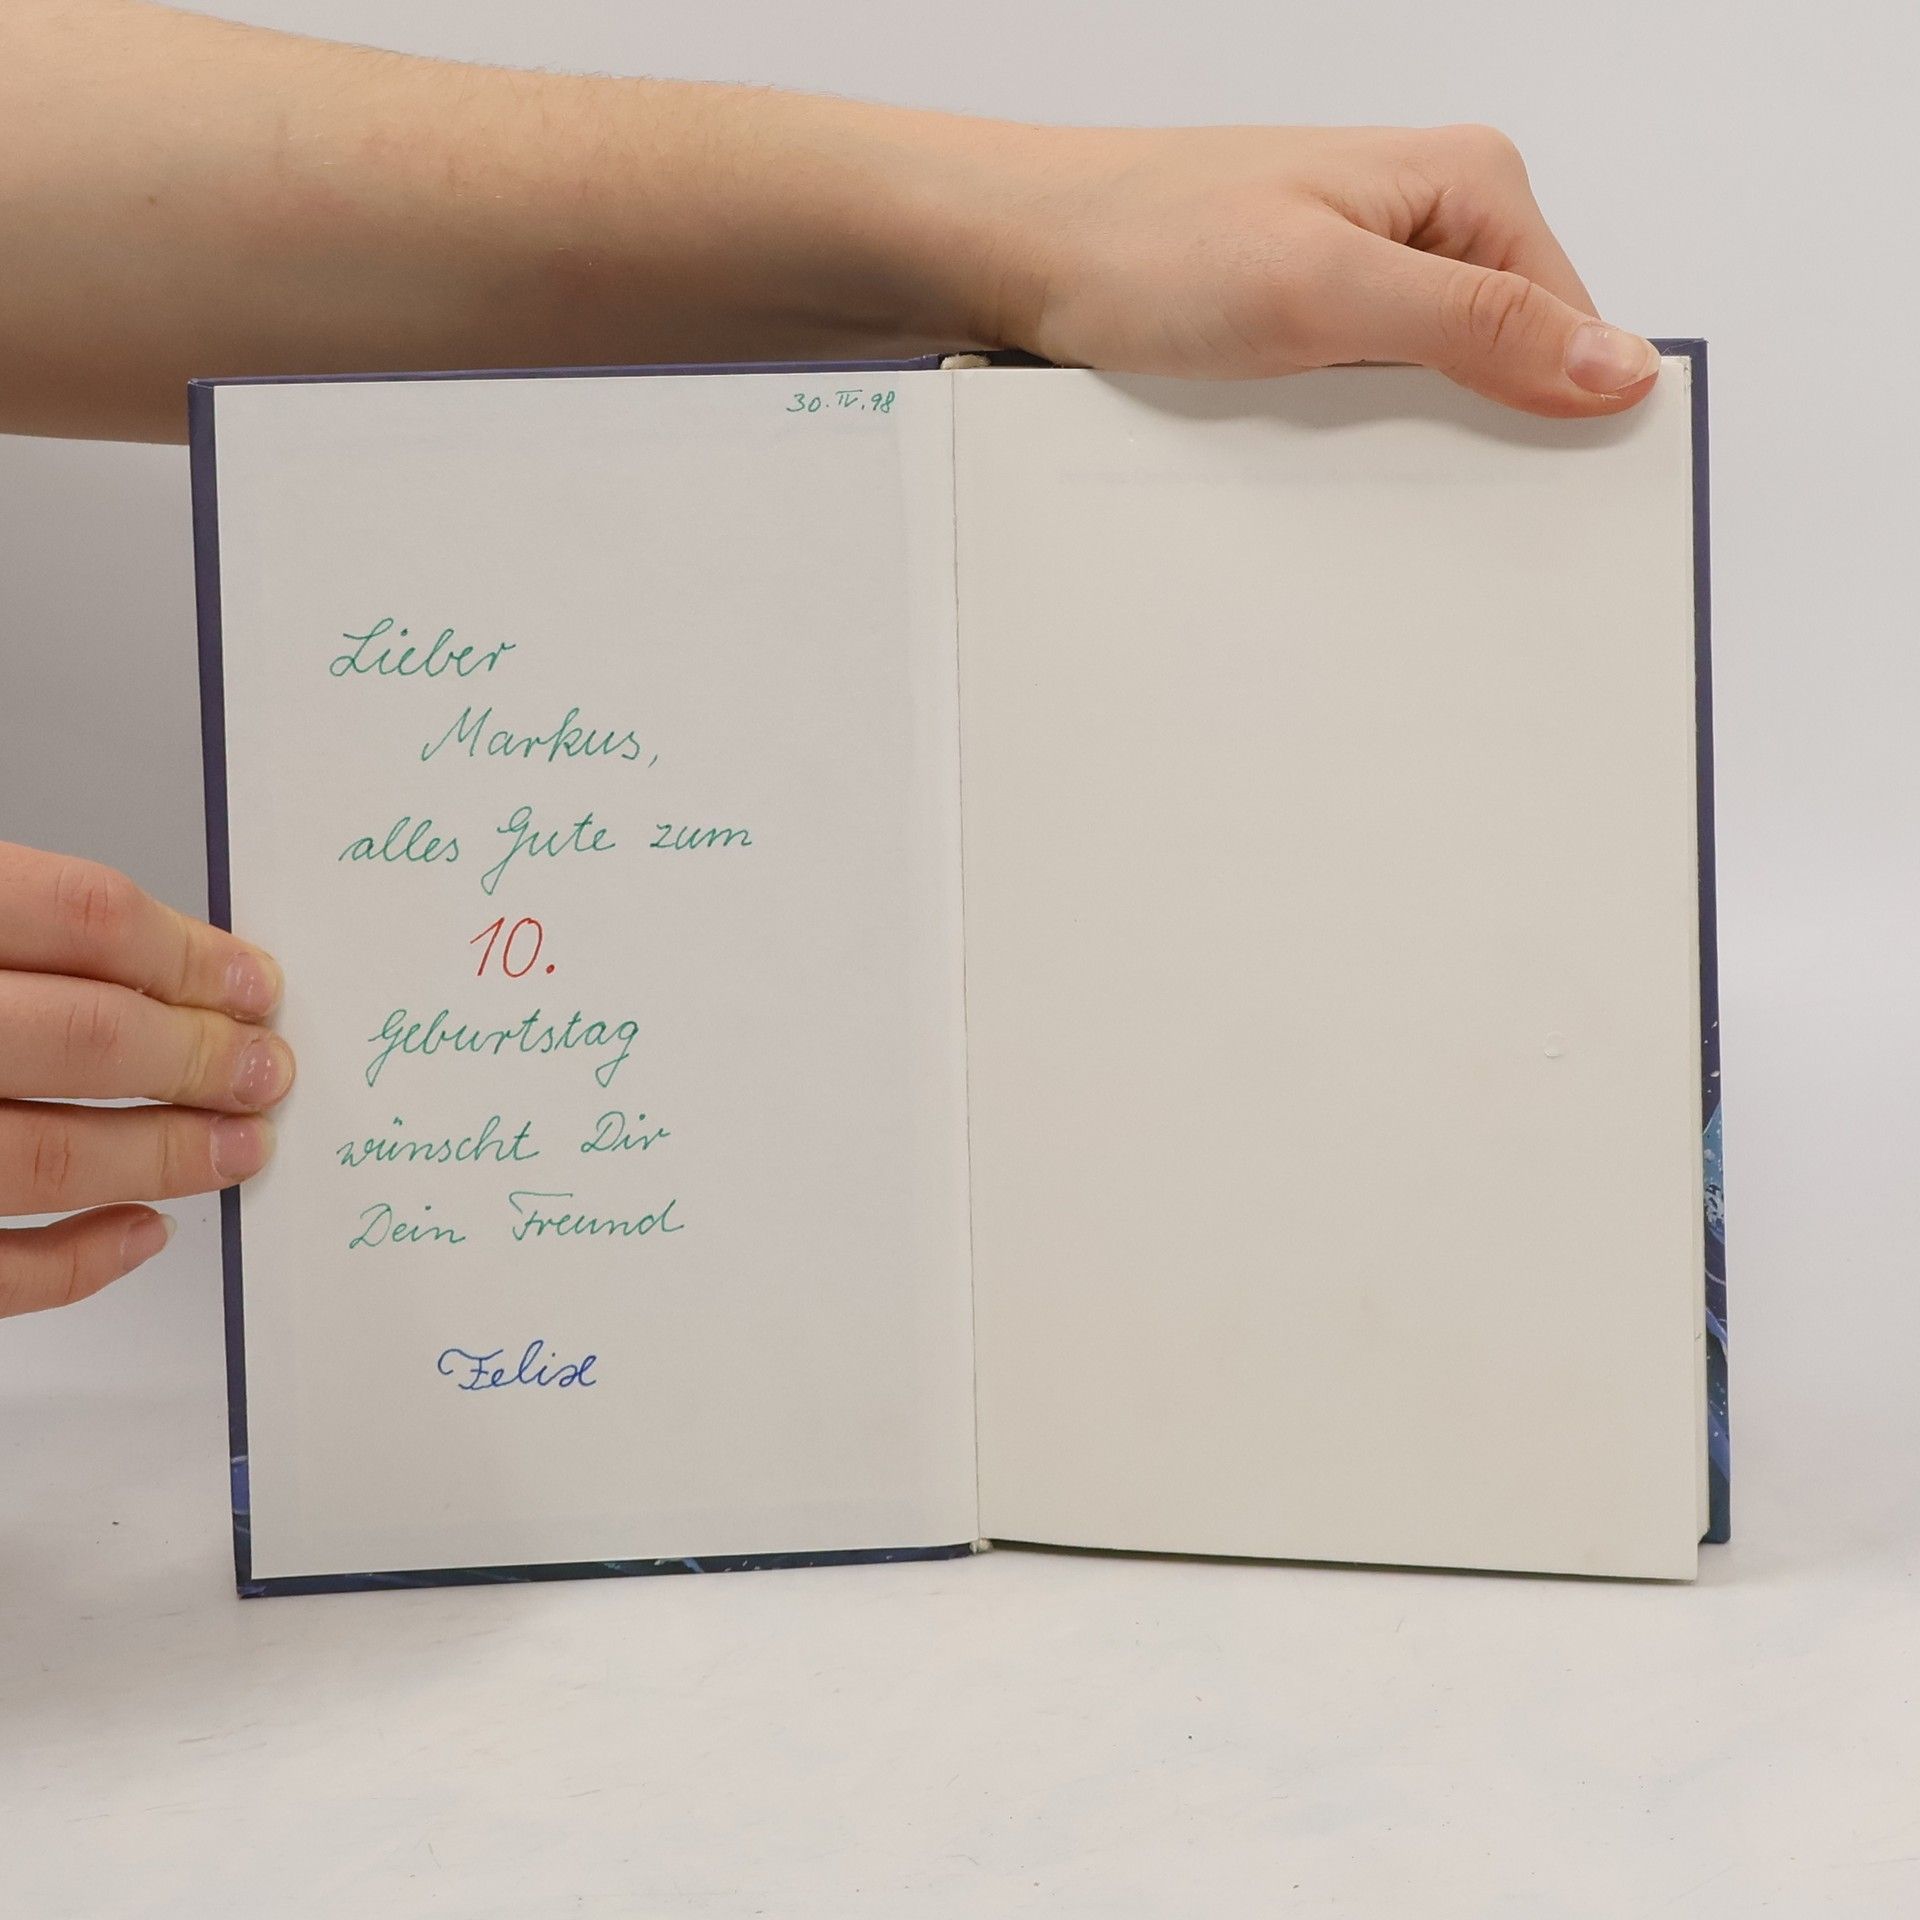 30.IV.98
Lieber
Markus,
alles Gute zum
10.
Geburtstag
wünscht Dir
Dein Freund
Felix